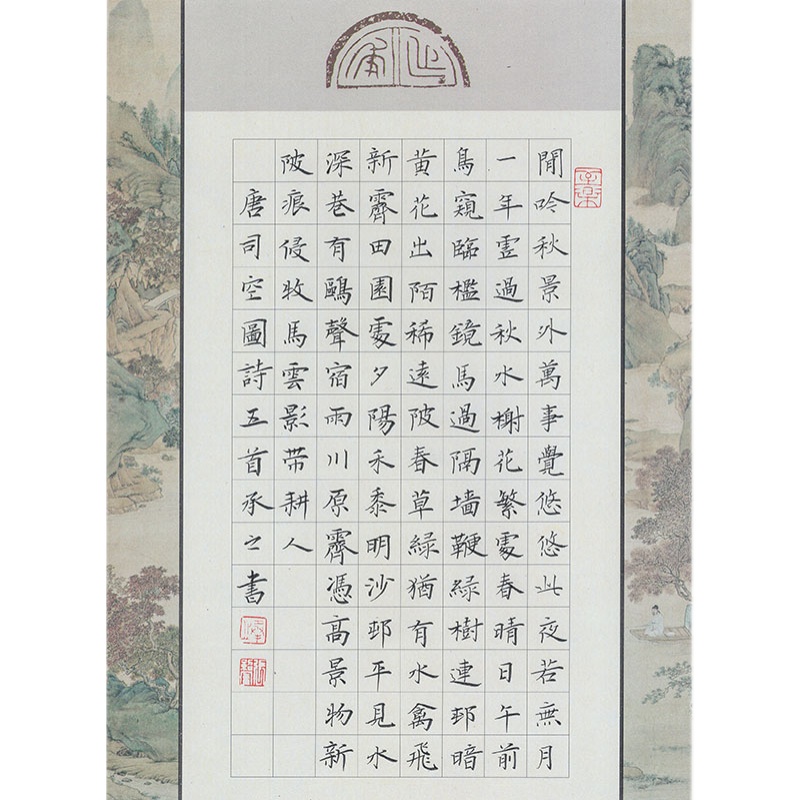 閒吟秋景外萬事覺悠悠此夜若無月
一年虛過秋水榭花繁處春晴日午前
鳥窺臨檻鏡馬過隔墙鞭綠樹連邨暗
黃花出陌稀遠陂春草綠猶有水禽飛
新霽田園處夕陽禾黍明沙邨平見水
深巷有鷗聲宿雨川原霽憑高景物新
陂痕侵牧馬雲影帶耕人
唐司空圖詩五首承之書